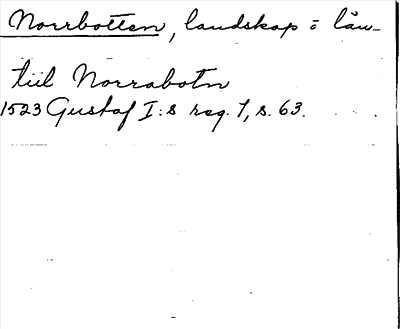 Norrbotten, landskap = län
tiil Norrabotn
1523 Gustaf I:s reg. 1, s. 63.